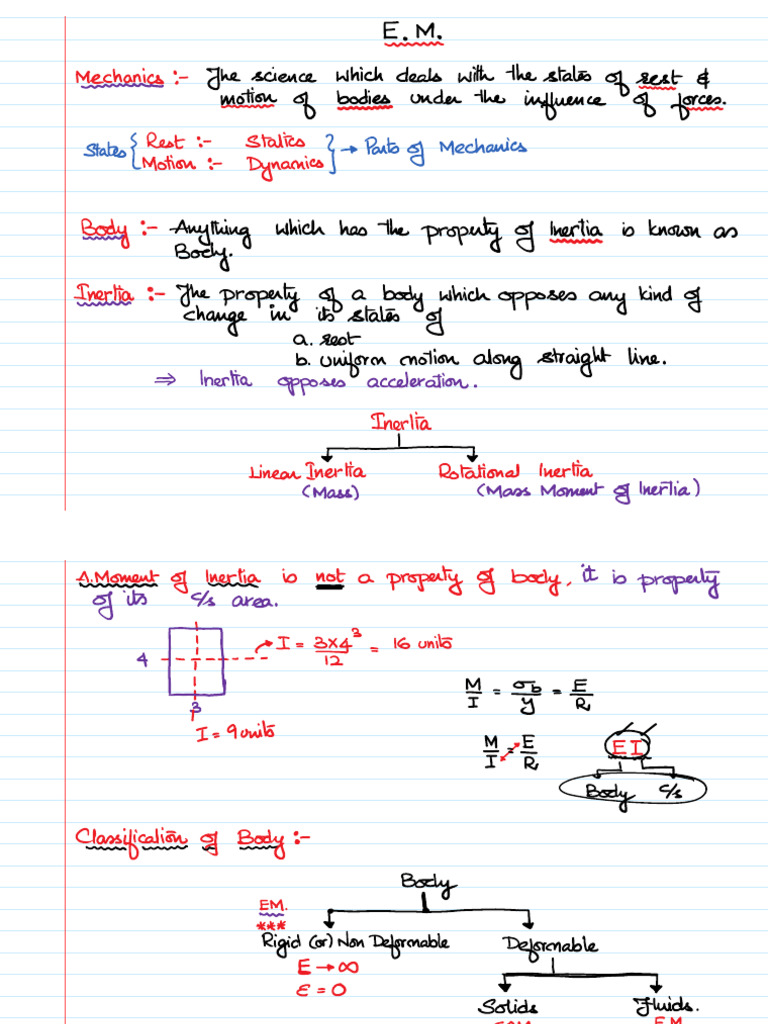 E. M.
Mechanics :- The science which deals with the states of rest &
motion of bodies under the influence of forces.
States { Rest :- Statics
Motion :- Dynamics } → Parts of Mechanics
Body :- Anything which has the property of Inertia is known as
Body.
Inertia :- The property of a body which opposes any kind of
change in its states of
a. rest
b. uniform motion along straight line.
⇒ Inertia opposes acceleration.
Inertia
Linear Inertia Rotational Inertia
(Mass) (Mass Moment of Inertia)
A.Moment of Inertia is not a property of body, it is property
of its c/s area.
I = 3×4³/12 = 16 units
4
3
I = 9 units
M/I = σb/y = E/R
M/I = E/R
EI
Body c/s
Classification of Body :-
Body
EM.
***
Rigid (or) Non Deformable Deformable
E → ∞
ε = 0
Solids Fluids.